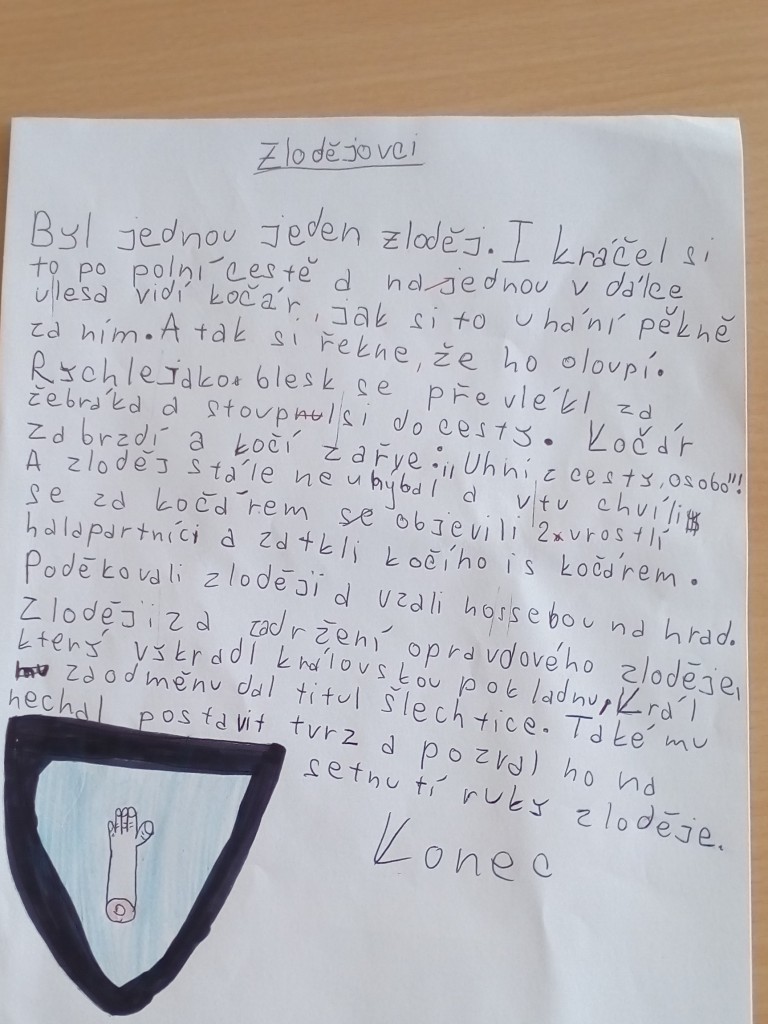 Zlodějovci
Byl jednou jeden zloděj. I kráčel si
to po polní cestě a najednou v dálce
u lesa vidí kočár, jak si to uhání pěkně
za ním. A tak si řekne, že ho oloupí.
Rychle jako blesk se převlékl za
žebráka a stoupl si do cesty. Kočár
zabrzdí a kočí zařve: „Uhni z cesty, osobo"!
A zloděj stále neuhýbal a v tu chvíli
se za kočárem objevili 2 vrostlí
halapartníci a zatkli kočího i s kočárem.
Poděkovali zloději a vzali ho s sebou na hrad.
Zloději za zadržení opravdového zloděje,
který vykradl královskou pokladnu, Král
za odměnu dal titul šlechtice. Také mu
nechal postavit tvrz a pozval ho na
setnutí ruky zloděje.
Konec